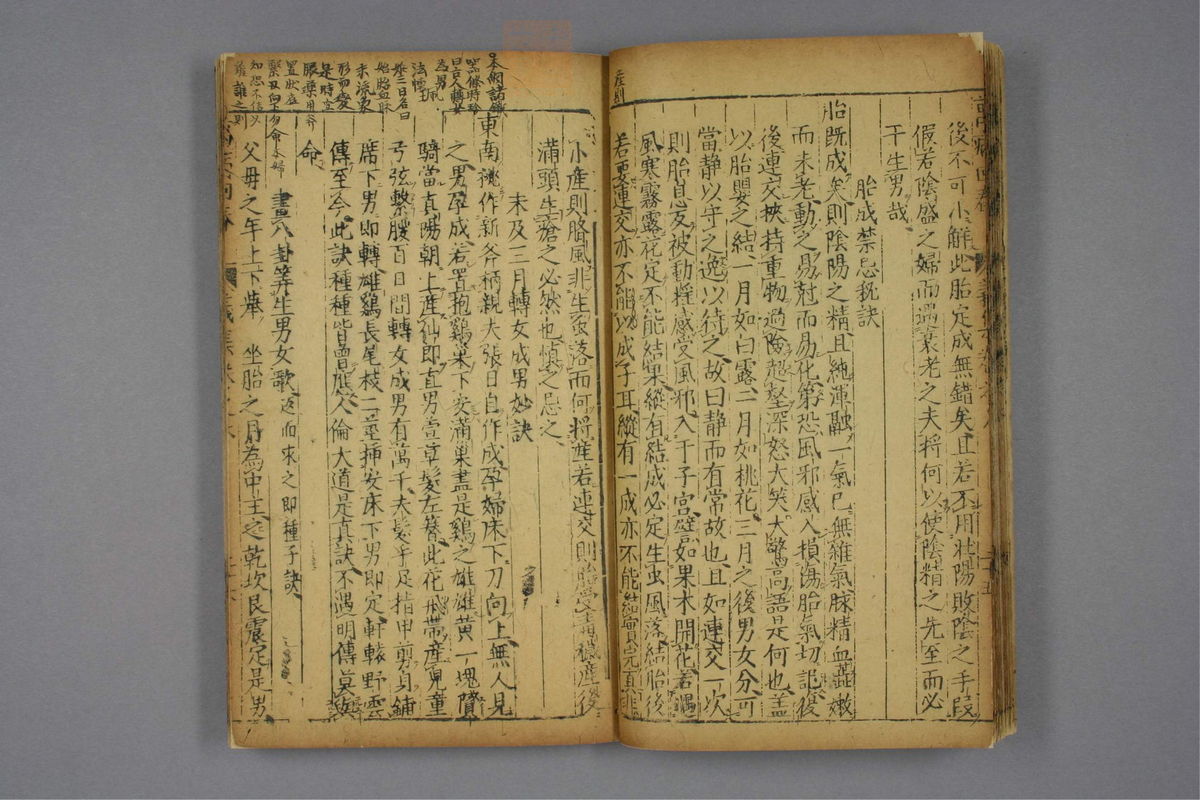 後不可小解此胎定成無錯矣且若不用壯陽敗陰之手段
假若陰盛之婦而遇衰老之夫將何以使陰精之先至而必
干生男哉
胎成禁忌秘訣
胎既成矣則陰陽之精且純渾融一氣已無雜氣脉精血蓝嫩
而未老動之易尅而易化第恐風邪感入損傷胎氣切記後
後連交挾持重物過險超壑深怒大笑大驚高語是何也盖
以胎嬰之結一月如白露二月如桃花三月之後男女分可
當静以守之逸以待之故曰静而有常故也且如連交一次
則胎息反被動精感受風邪入于子宮譬如果木開花若遇
風寒霧露花定不能結果縱有結成必定生虫風落結胎後
若要連交亦不能以成子耳縱有一成亦不能結實完真非
小産則臍風非生蚤落而何將産若連交則胎受毒穢産後
滿頭生瘡之必然也慎之忌之
未及三月轉女成男妙訣
東南桃作新斧柄親夫張日自作成孕婦床下刀向上無人見
之男孕成若置抱鷄巢下安滿巢盡是鷄之雄雄黄一塊賸
騎當真陽朝上産仙即直男萱草髮左簪此花戒帶産兒童
弓弦繫腰百日間轉女成男有萬千夫髮手足指甲剪貝鋪
席下男即轉雄鷄長尾枝二莖揷安床下男即定軒轅野雲
傳至今此訣種種皆曾應人倫大道是真訣不遇明傳莫與
命
畫八卦筭生男女歌返而求之即種子訣
父母之年上下牽 坐胎之月為中主之乾坎艮震定是男